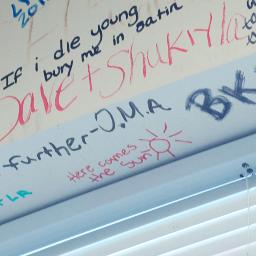 2019
If i die young
bury me in satin
Dave + Shukyla
further-J.M.A
BK
Here comes
the sun
LA